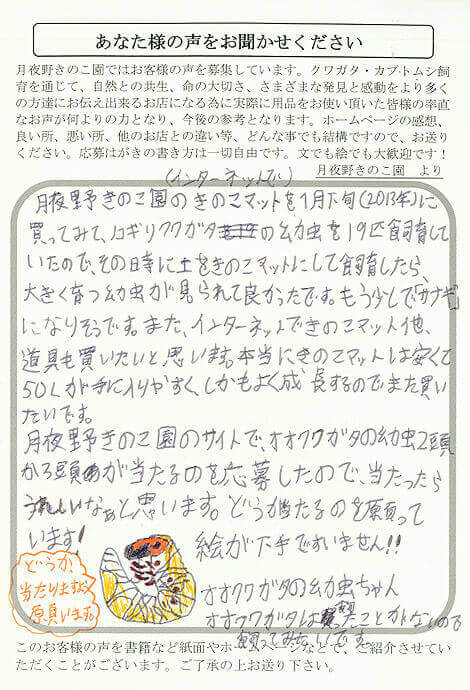 あなた様の声をお聞かせください
月夜野きのこ園ではお客様の声を募集しています。クワガタ・カブトムシ飼
育を通じて、自然との共生、命の大切さ、さまざまな発見と感動をより多く
の方達にお伝え出来るお店になる為に実際に用品をお使い頂いた皆様の率直
なお声が何よりの力となり、今後の参考となります。ホームページの感想、
良い所、悪い所、他のお店との違い等、どんな事でも結構ですので、お送り
ください。応募はがきの書き方は一切自由です。文でも絵でも大歓迎です！
月夜野きのこ園 より
(インターネットで)
月夜野きのこ園のきのこマットを1月下旬(2013年)に
買ってみて、ノコギリクワガタの幼虫を19匹飼育して
いたので、その日時に土をきのこマットにして飼育したら、
大きく育つ幼虫が見られて良かったです。もう少しで「サナギ」
になりそうです。また、インターネットできのこマット他、
道具も買いたいと思います。本当にきのこマットは安くて
50Lが手に入りやすく、しかもよく成長するのでまた買い
たいです。
月夜野きのこ園のサイトで、オオクワガタの幼虫2頭
が当たるのを応募したので、当たったら
うれしいなぁと思います。どうか当たるのを願って
います!
絵が下手ですいません!!
どうか
当たりますよう
願います。
オオクワガタの幼虫ちゃん
オオクワガタは飼ったことがないので
飼ってみたいです。
このお客様の声を書籍など紙面やホームページなどで、ご紹介させてい
ただくことがございます。ご了承の上お送り下さい。